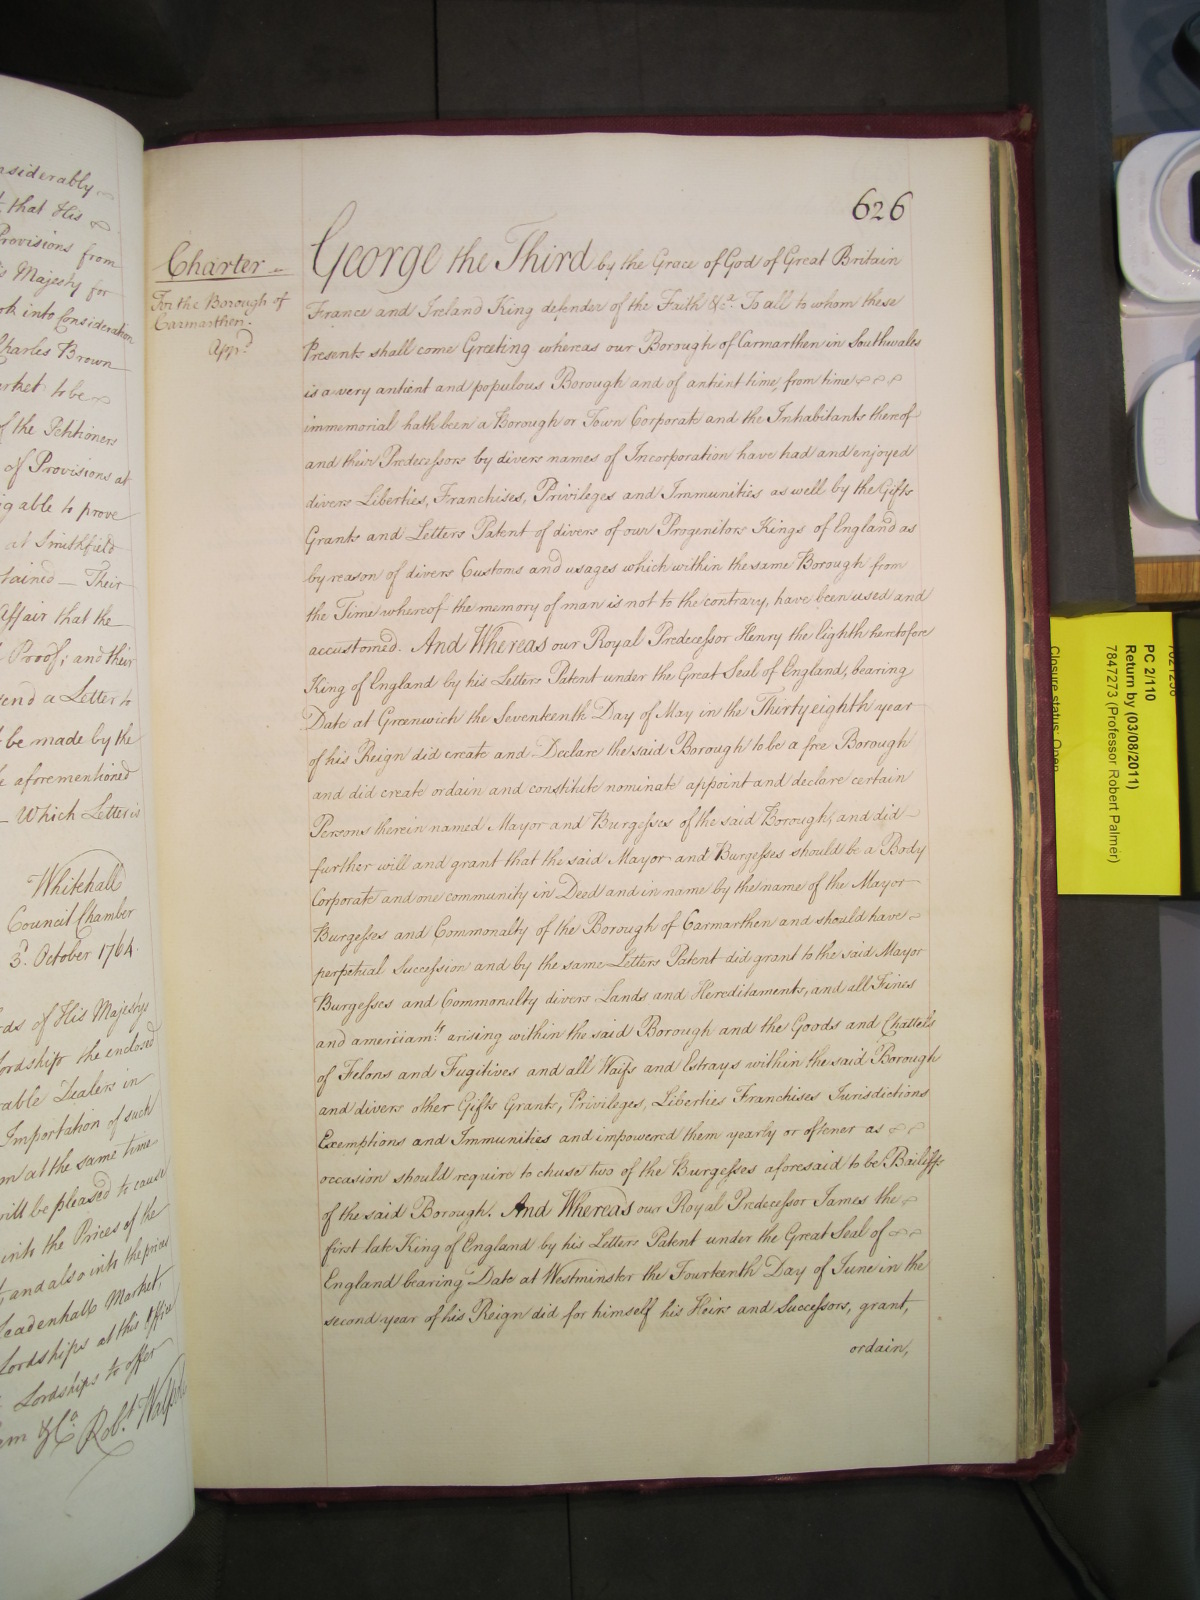 nsiderably
that His
Provisions from
Majesty for
into Consideration
Charles Brown
to be
of the Petitioners
of Provisions at
able to prove
at Smithfield
tained — Their
Affair that the
Proof; and their
end a Letter to
be made by the
aforementioned
— Which Letter is
Whitehall
Council Chamber
3.d October 1764.
rds of His Majestys
ordships the enclosed
Dealers in
Importation of such
m at the same time
will be pleased to cause
into the Prices of the
and also into the prices
Leadenhall Market,
Lordships at this Office
Lordships to offer
am &c.a Rob.t Walpole
626
Charter
For the Borough of
Carmarthen.
App.d
George the Third by the Grace of God of Great Britain
France and Ireland King defender of the Faith &c.a To all to whom these
Presents shall come Greeting whereas our Borough of Carmarthen in Southwales
is a very antient and populous Borough and of antient time, from time
immemorial hath been a Borough or Town Corporate and the Inhabitants thereof
and their Predecessors by divers names of Incorporation have had and enjoyed
divers Liberties, Franchises, Privileges and Immunities as well by the Gifts
Grants and Letters Patent of divers of our Progenitors Kings of England as
by reason of divers Customs and usages which within the same Borough from
the Time whereof the memory of man is not to the contrary, have been used and
accustomed. And Whereas our Royal Predecessor Henry the Eighth heretofore
King of England by his Letters Patent under the Great Seal of England, bearing
Date at Greenwich the Seventeenth Day of May in the Thirty eighth year
of his Reign did create and Declare the said Borough to be a free Borough
and did create ordain and constitute nominate appoint and declare certain
Persons therein named Mayor and Burgesses of the said Borough, and did
further will and grant that the said Mayor and Burgesses should be a Body
Corporate and one community in Deed and in name by the name of the Mayor
Burgesses and Commonalty of the Borough of Carmarthen and should have
perpetual Succession and by the same Letters Patent did grant to the said Mayor
Burgesses and Commonalty divers Lands and Hereditaments, and all Fines
and amerciam.ts arising within the said Borough and the Goods and Chattels
of Felons and Fugitives and all Waifs and Estrays within the said Borough
and divers other Gifts Grants, Privileges, Liberties Franchises Jurisdictions
Exemptions and Immunities and impowered them yearly or oftener as
occasion should require to chuse two of the Burgesses aforesaid to be Bailiffs
of the said Borough. And Whereas our Royal Predecessor James the
first late King of England by his Letters Patent under the Great Seal of
England bearing Date at Westminster the Fourteenth Day of June in the
second year of his Reign did for himself his Heirs and Successors, grant,
ordain,
PC 2/110
Return by (03/08/2011)
7847273 (Professor Robert Palmer)
Closure status: Open